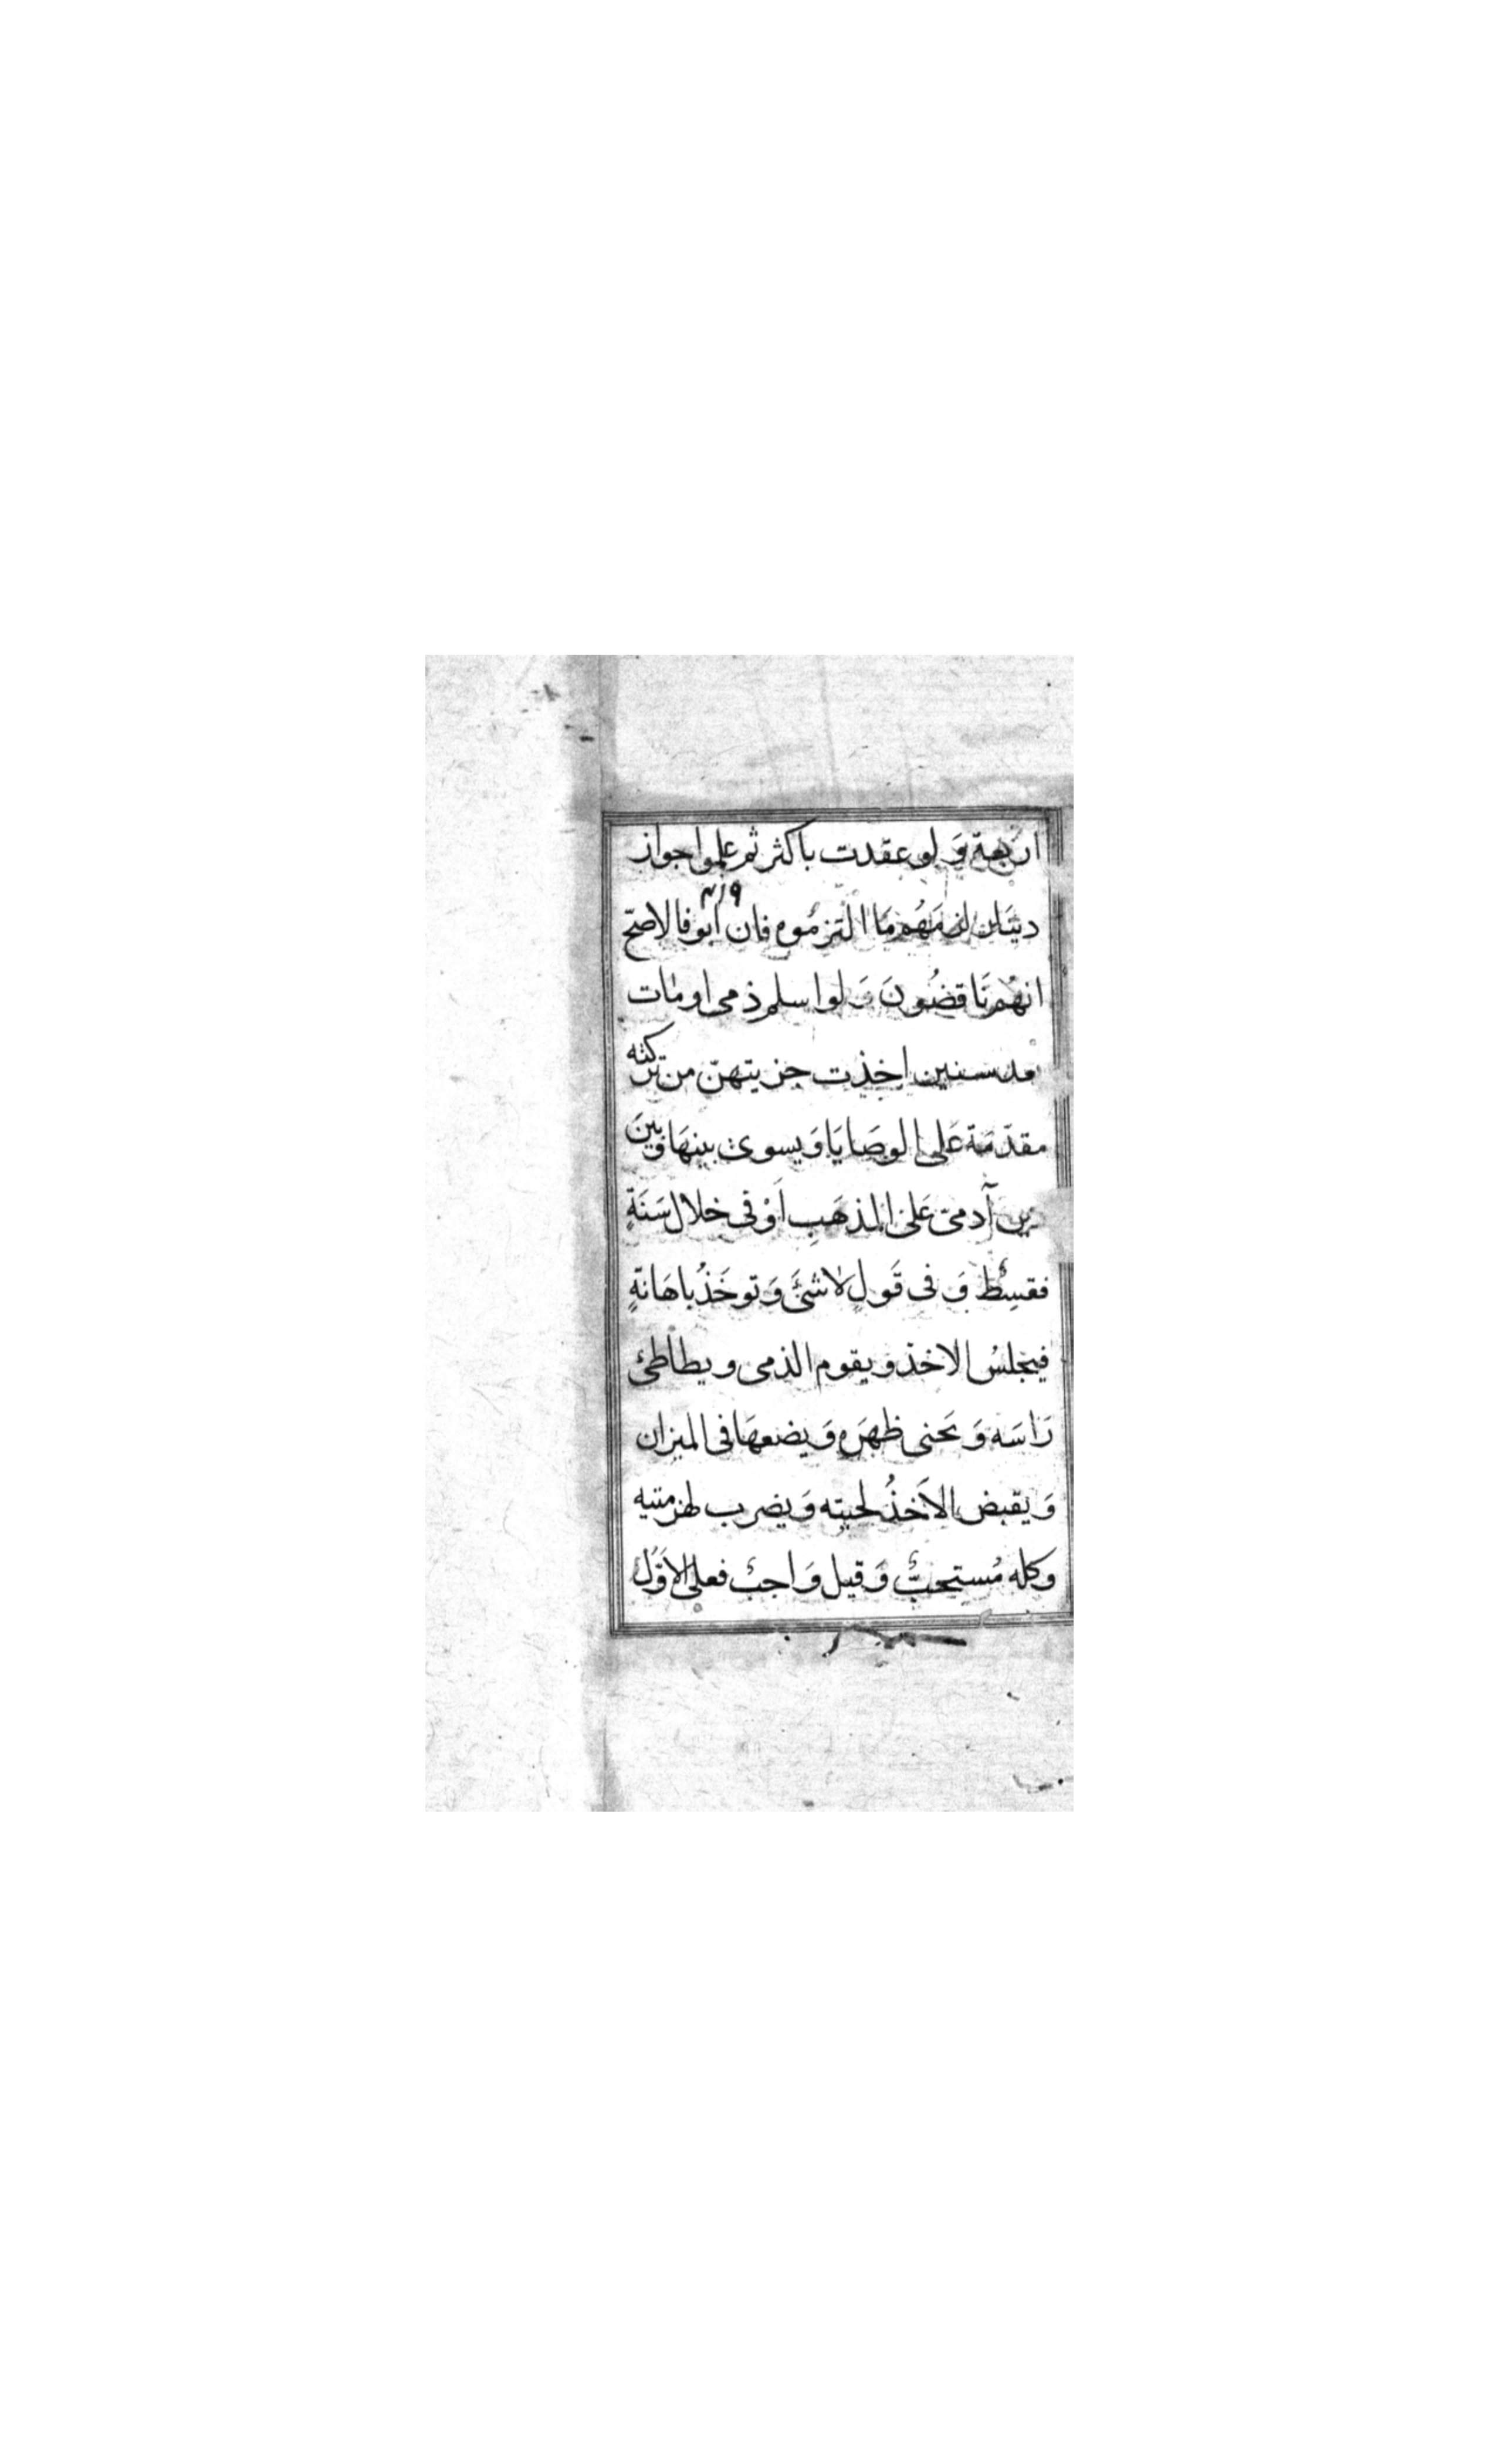 اربعة وَ لو عقدت باكثر ثم علموا جواز
دينار لزمَهُم مَا التزمُوه فان ابوا فالاصحّ
انهُم نَاقضُونَ وَ لو اسلم ذمى او مات
بعد سنين اخِذت جزيتهنّ من تركته
مقدّمَة عَلى الوصَايَا وَ يسوى بينهَا وَ بينَ
دين آدمىّ عَلى المذهَبِ اَوْ فى خلال سَنَةٍ
فقسِطٌ وَ فى قَولٍ لا شئَ وَ توخَذُ باهَانةٍ
فيجلسُ الاخذ و يقوم الذمى و يطاطئ
رَاسَه وَ يحَنى ظهرَه وَ يضعهَا فى الميزان
وَ يقبض الآخذُ لحيته وَ يضرب لهزمتيه
وكله مُستحبٌّ وَ قيل وَاجبٌ فعلى الاوّل